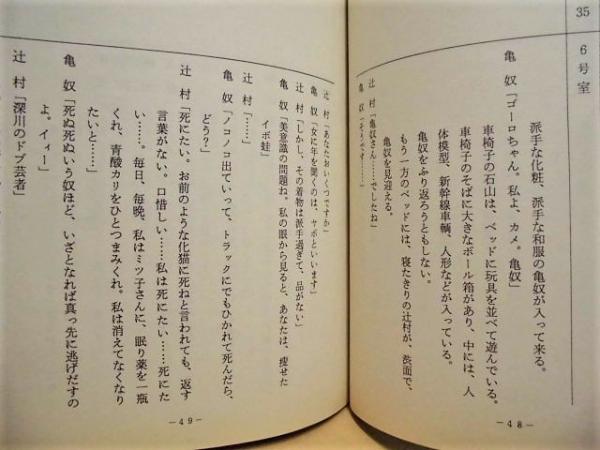 35
6号室
派手な化粧、派手な和服の亀奴が入って来る。
亀 奴「ゴーロちゃん。私よ、カメ。亀奴」
車椅子の石山は、ベッドに玩具を並べて遊んでいる。
車椅子のそばに大きなボール箱があり、中には、人
体模型、新幹線車輌、人形などが入っている。
亀奴をふり返ろうともしない。
もう一方のベッドには、寝たきりの辻村が、渋面で、
亀奴を見迎える。
辻 村「亀奴さん……でしたね」
亀 奴「そうです……」
—48—
辻 村「あなたおいくつですか」
亀 奴「女に年を聞くのは、ヤボといいます」
辻 村「しかし、その着物は派手過ぎて、品がない」
亀 奴「美意識の問題ね。私の眼から見ると、あなたは、痩せた
イボ蛙」
辻 村「……」
亀 奴「ノコノコ出ていって、トラックにでもひかれて死んだら、
どう？」
辻 村「死にたい。お前のような化猫に死ねと言われても、返す
言葉がない。口惜しい……私は死にたい……死にた
い……。毎日、毎晩、私はミツ子さんに、眠り薬を一瓶
くれ、青酸カリをひとつまみくれ。私は消えてなくなり
たいと……」
亀 奴「死ぬ死ぬいう奴ほど、いざとなれば真っ先に逃げだすの
よ。イィー」
辻 村「深川のドブ芸者」
—49—